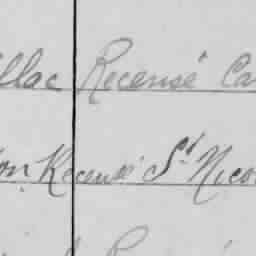 llac Recensé Ca
on Recensé St Nico